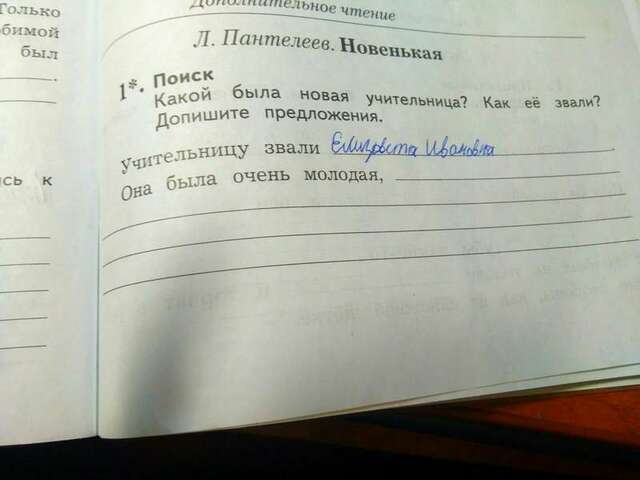 Только
бимой
был
ись к
Дополнительное чтение
Л. Пантелеев. Новенькая
1*. Поиск
Какой была новая учительница? Как её звали?
Допишите предложения.
учительницу звали Елизовета Ивановна.
Она была очень молодая,